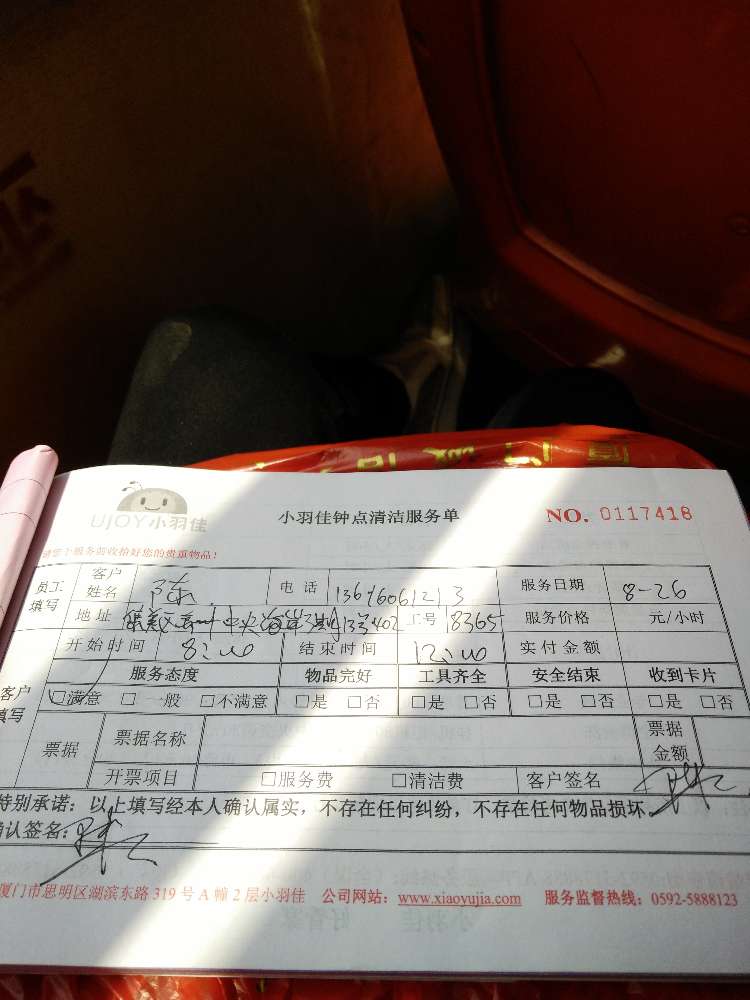 UJOY小羽佳 小羽佳钟点清洁服务单 NO. 0117418
服务前收拾好您的贵重物品!
员工填写 客户姓名 陈 电话 13696061213 服务日期 8-26
地址 中央海岸 13号402 工号 18365 服务价格 元/小时
开始时间 8:00 结束时间 12:00 实付金额
客户填写 服务态度 物品完好 工具齐全 安全结束 收到卡片
□满意 □一般 □不满意 □是 □否 □是 □否 □是 □否 □是 □否
票据 票据名称 票据金额
开票项目 □服务费 □清洁费 客户签名
特别承诺:以上填写经本人确认属实,不存在任何纠纷,不存在任何物品损坏。
确认签名:
厦门市思明区湖滨东路 319 号 A 幢 2 层小羽佳 公司网站:www.xiaoyujia.com 服务监督热线:0592-5888123